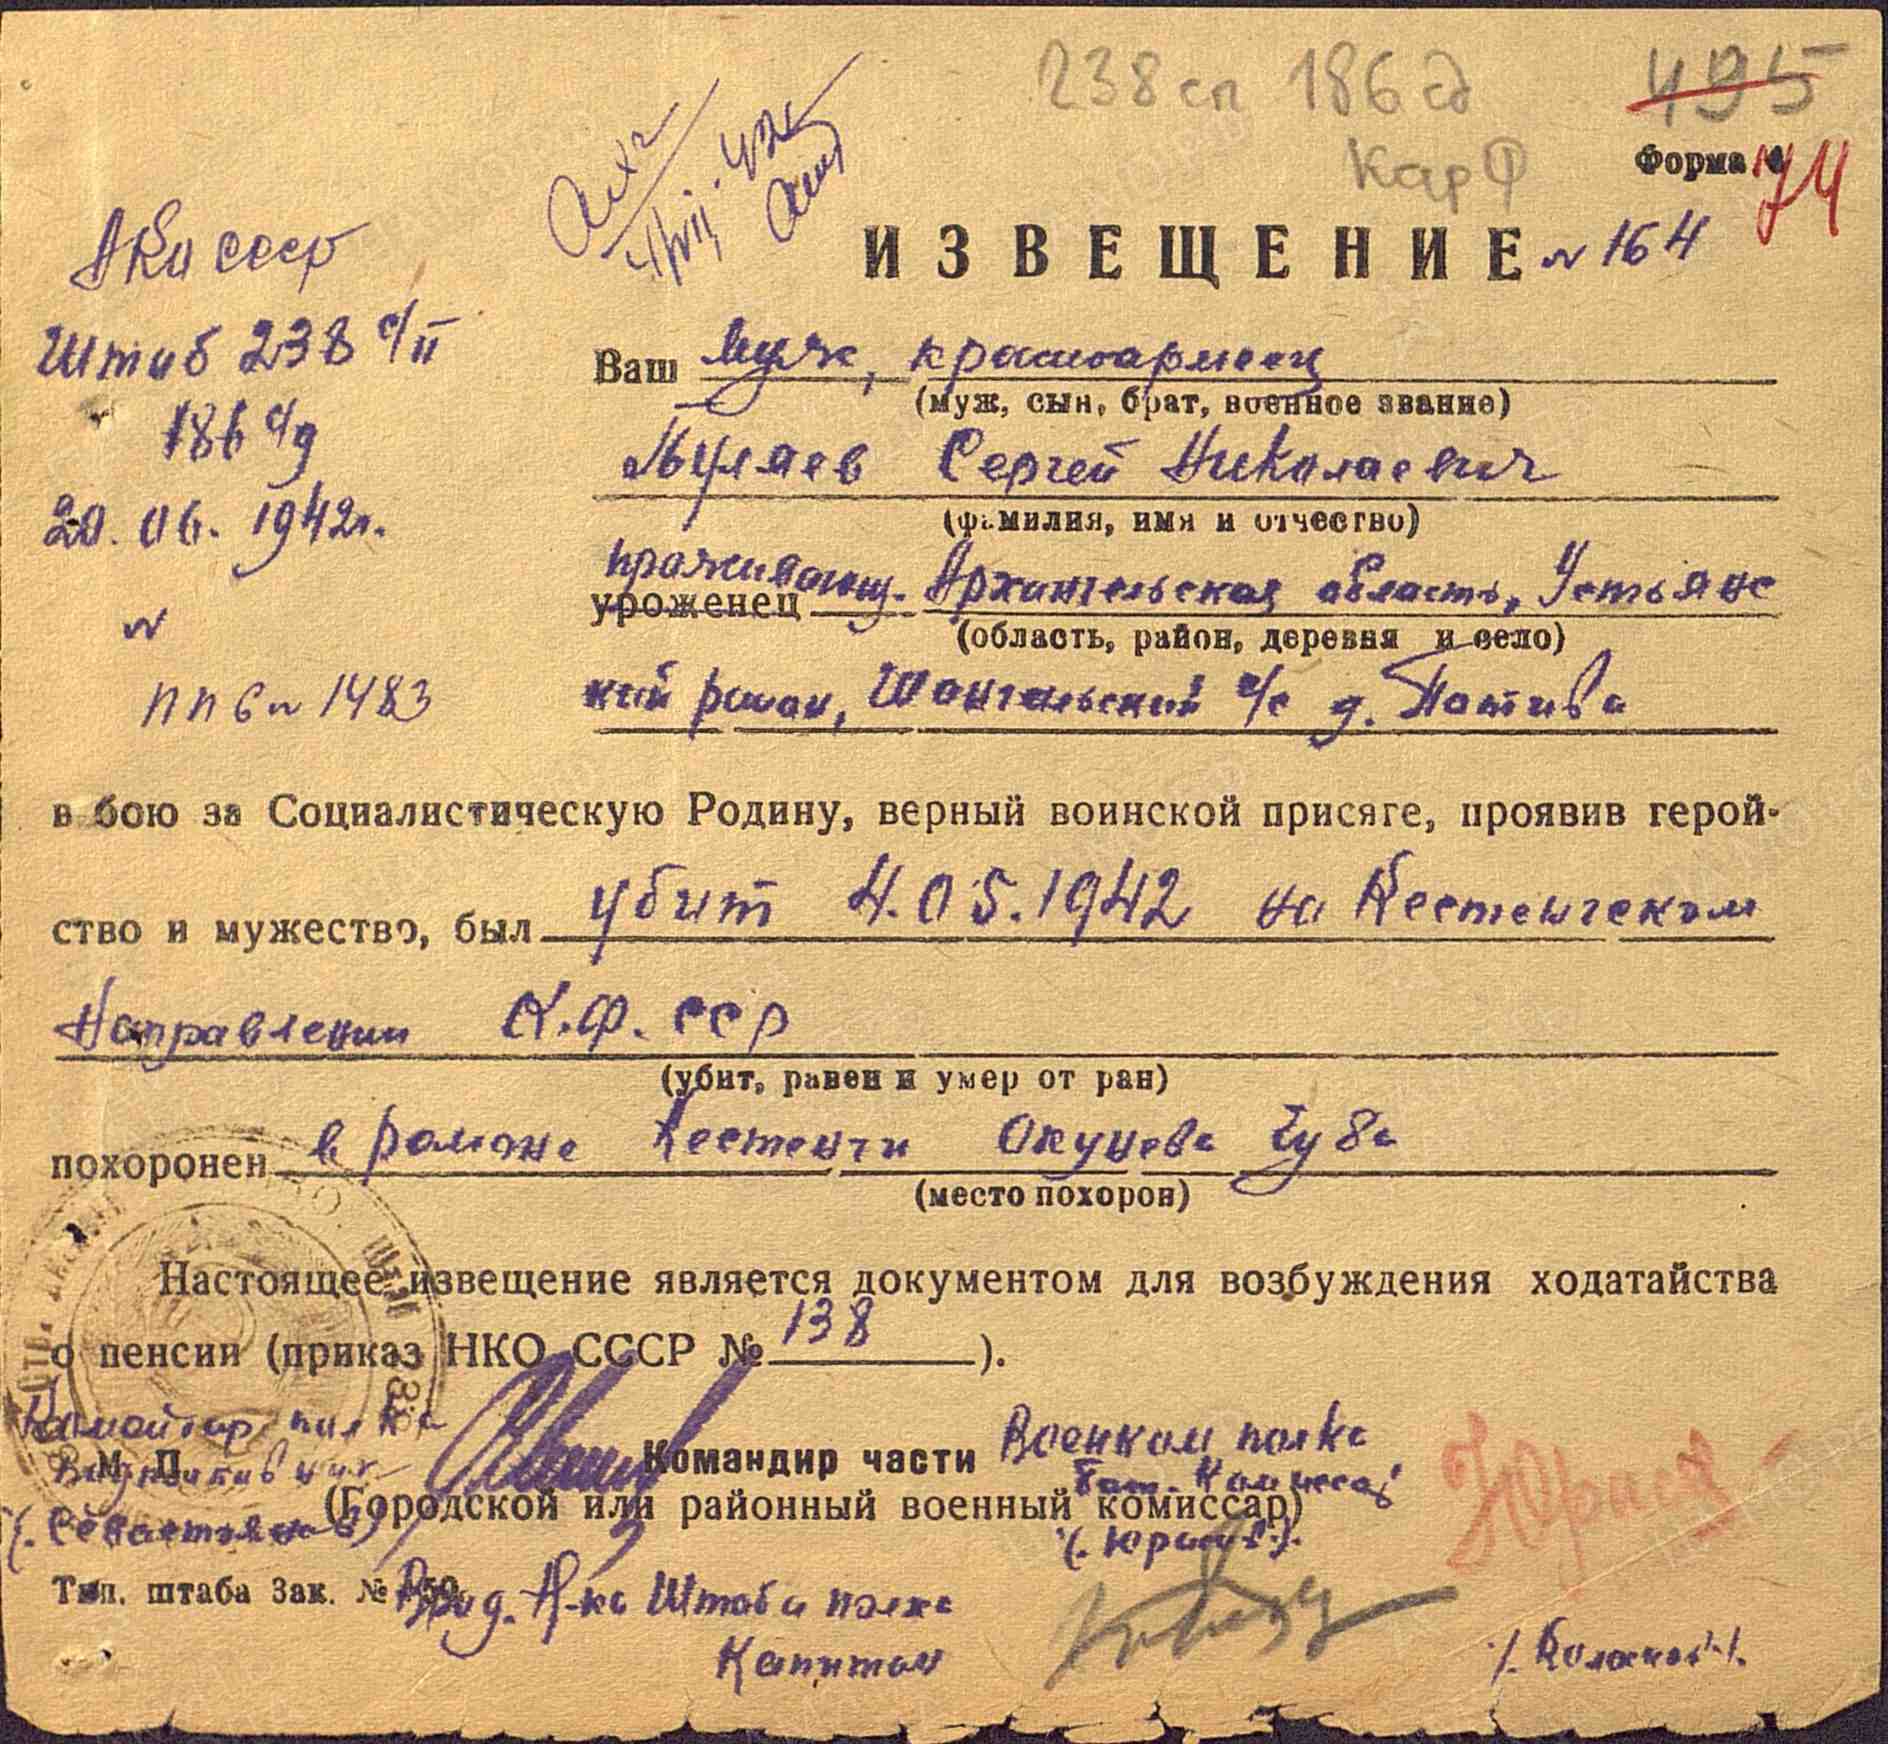 238 сп 186 сд
495
Кар Ф
Форма
74
ИЗВЕЩЕНИЕ № 164
НКО СССР
Штаб 238 с/п
186 с/д
20. 06. 1942г.
№
ппс № 1483
Ваш муж, красноармеец
(муж, сын, брат, военное звание)
Сергей Николаевич
(фамилия, имя и отчество)
проживающ.
уроженец Архангельская область, Устьянс
(область, район, деревня и село)
кий район, Шангальский с/с д.
в бою за Социалистическую Родину, верный воинской присяге, проявив герой-
ство и мужество, был убит 4.05.1942 на Кестенгском
Направлении К.Ф. ССР
(убит, ранен и умер от ран)
похоронен в районе Кестенги Окунева Губа
(место похорон)
Настоящее извещение является документом для возбуждения ходатайства
о пенсии (приказ НКО СССР № 138 ).
Командир полка
М. П.
Командир части Военком полка
Бат. Комиссар
(Городской или районный военный комиссар)
(. Севастьянов)
Тип. штаба Зак. №
Врид. Н-ка Штаба полка
Капитан